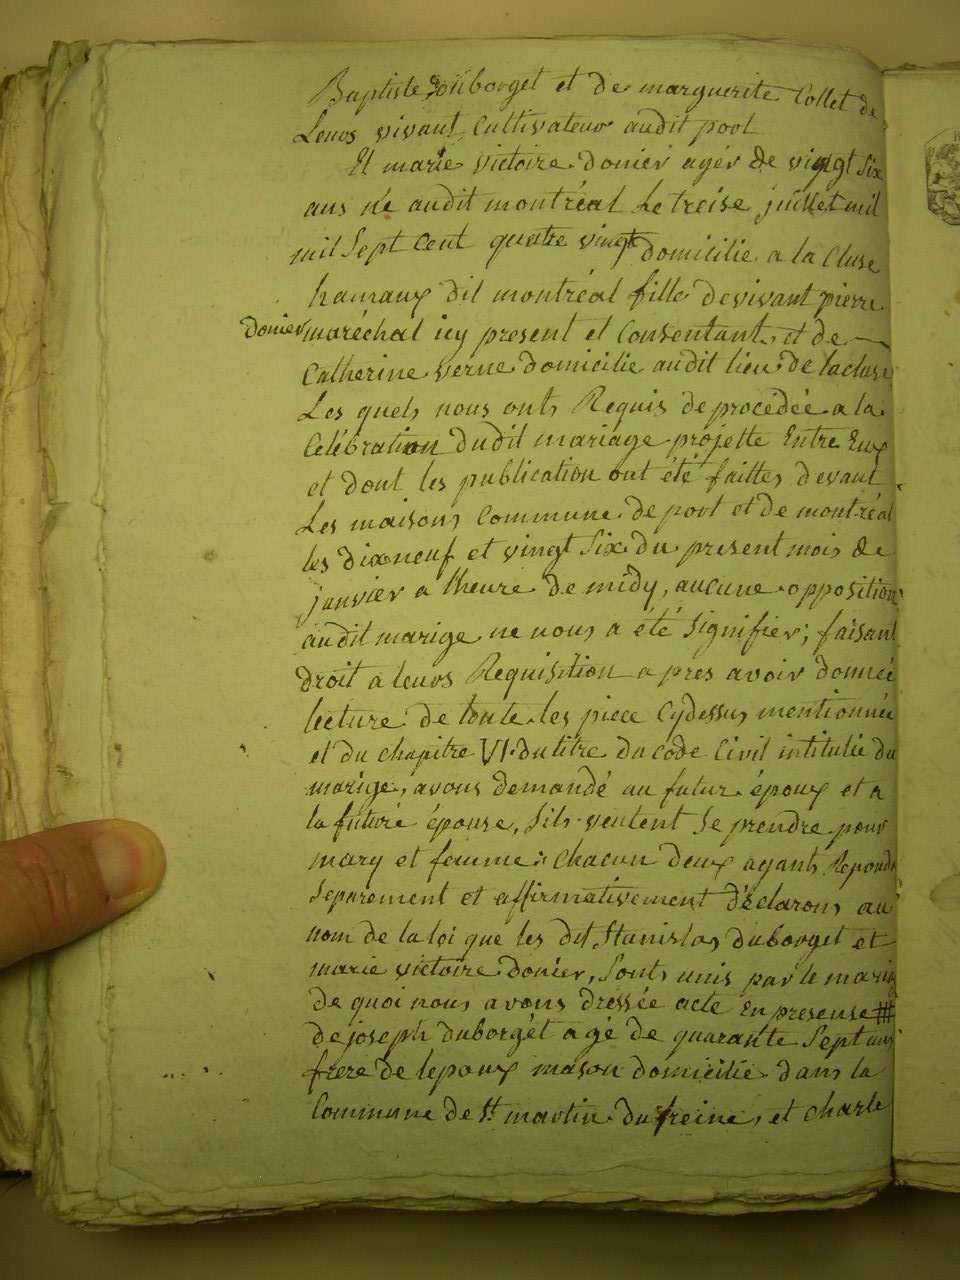 Baptiste Duborget et de marguerite Collet de
Leurs vivant, Cultivateurs audit port
Et marie victoire donier agér de vingt Six
ans né audit montréal Le treise juillet mil
mil Sept Cent quatre vingt domicilie a la Cluse
hamaux dit montréal fille devivant pierre
donier maréchal icy present et Consentant, et de
Catherine verne domicilie audit lieu de lacluse
Les quels nous onts Requis de procédée a la
Célébration dudit mariage projette Entre Eux
et dont les publication ont été faittes devant
Les maisons Commune de port et de montréal
les dixneuf et vingt Six du present mois de
janvier a l'heure de midy, aucune opposition
audit marige ne nous a été Signifier; faisant
droit a leurs Requisition a pres avoir donnée
lecture de toute les piece Cydessus mentionnée
et du chapitre VI. du titre du Code Civil intitulée du
marige, avons demandé au futur époux et a
la futuré épouse, Sils veulent Se prendre pour
mary et femme: Chacun deux ayants Repondu
Separement et affirmativement déclarons au
nom de la loi que les dit Stanislas duborget et
marie victoire donier, Sonts unis par le mariage
de quoi nous avons dressée acte En presense #
de joseph duborgét agé de quarante Sept ans
frere de lepoux mason domicilié dans la
Commune de St martin du freine, et Charle